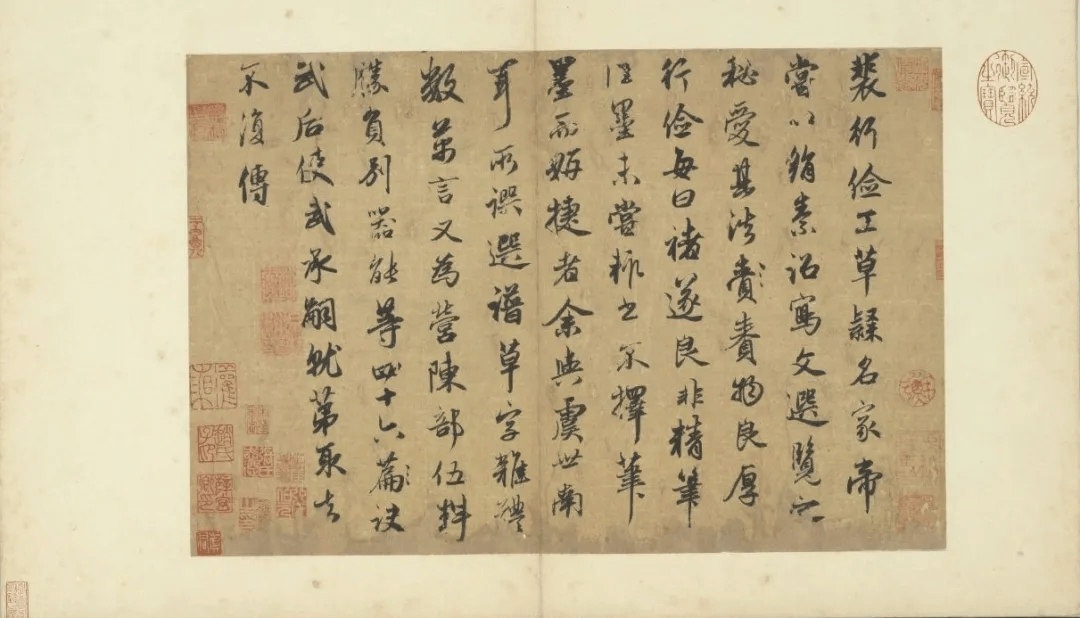 宣統御覽之寶
裴行儉工草隸名家帝
嘗以絹素詔寫文選覽之
秘愛其法賚賚物良厚
行儉每曰褚遂良非精筆
佳墨未嘗輒書不擇筆
墨而妍捷者余與虞世南
耳所譔選譜草字雜體
數萬言又為營陳部伍料
勝負別器能等四十六篇訣
武后使武承嗣就第取去
不復傳